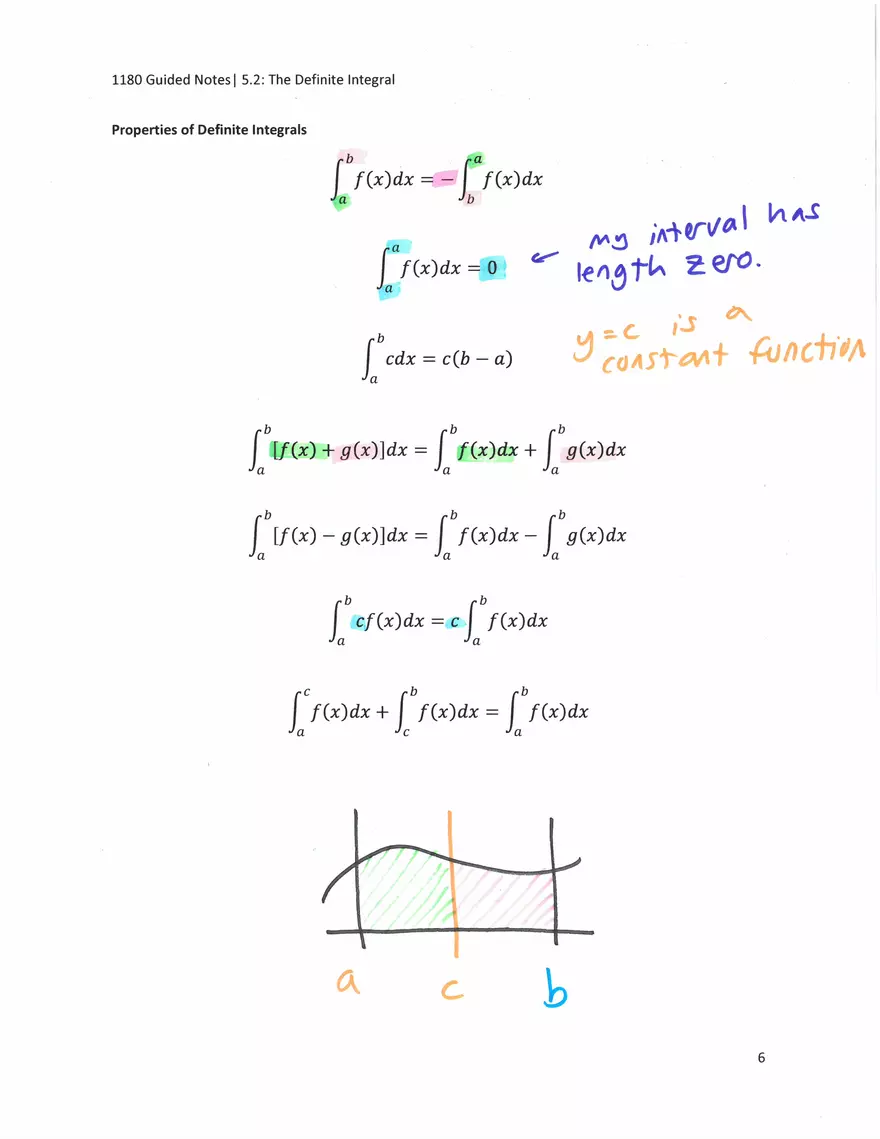 1180 Guided Notes| 5.2: The Definite Integral
Properties of Definite Integrals
∫_a^b f(x)dx = − ∫_b^a f(x)dx
∫_a^a f(x)dx = 0 ← my interval has
length zero.
∫_a^b cdx = c(b − a) y=c is a
constant function
∫_a^b [f(x) + g(x)]dx = ∫_a^b f(x)dx + ∫_a^b g(x)dx
∫_a^b [f(x) − g(x)]dx = ∫_a^b f(x)dx − ∫_a^b g(x)dx
∫_a^b cf(x)dx = c ∫_a^b f(x)dx
∫_a^c f(x)dx + ∫_c^b f(x)dx = ∫_a^b f(x)dx
a c b
6